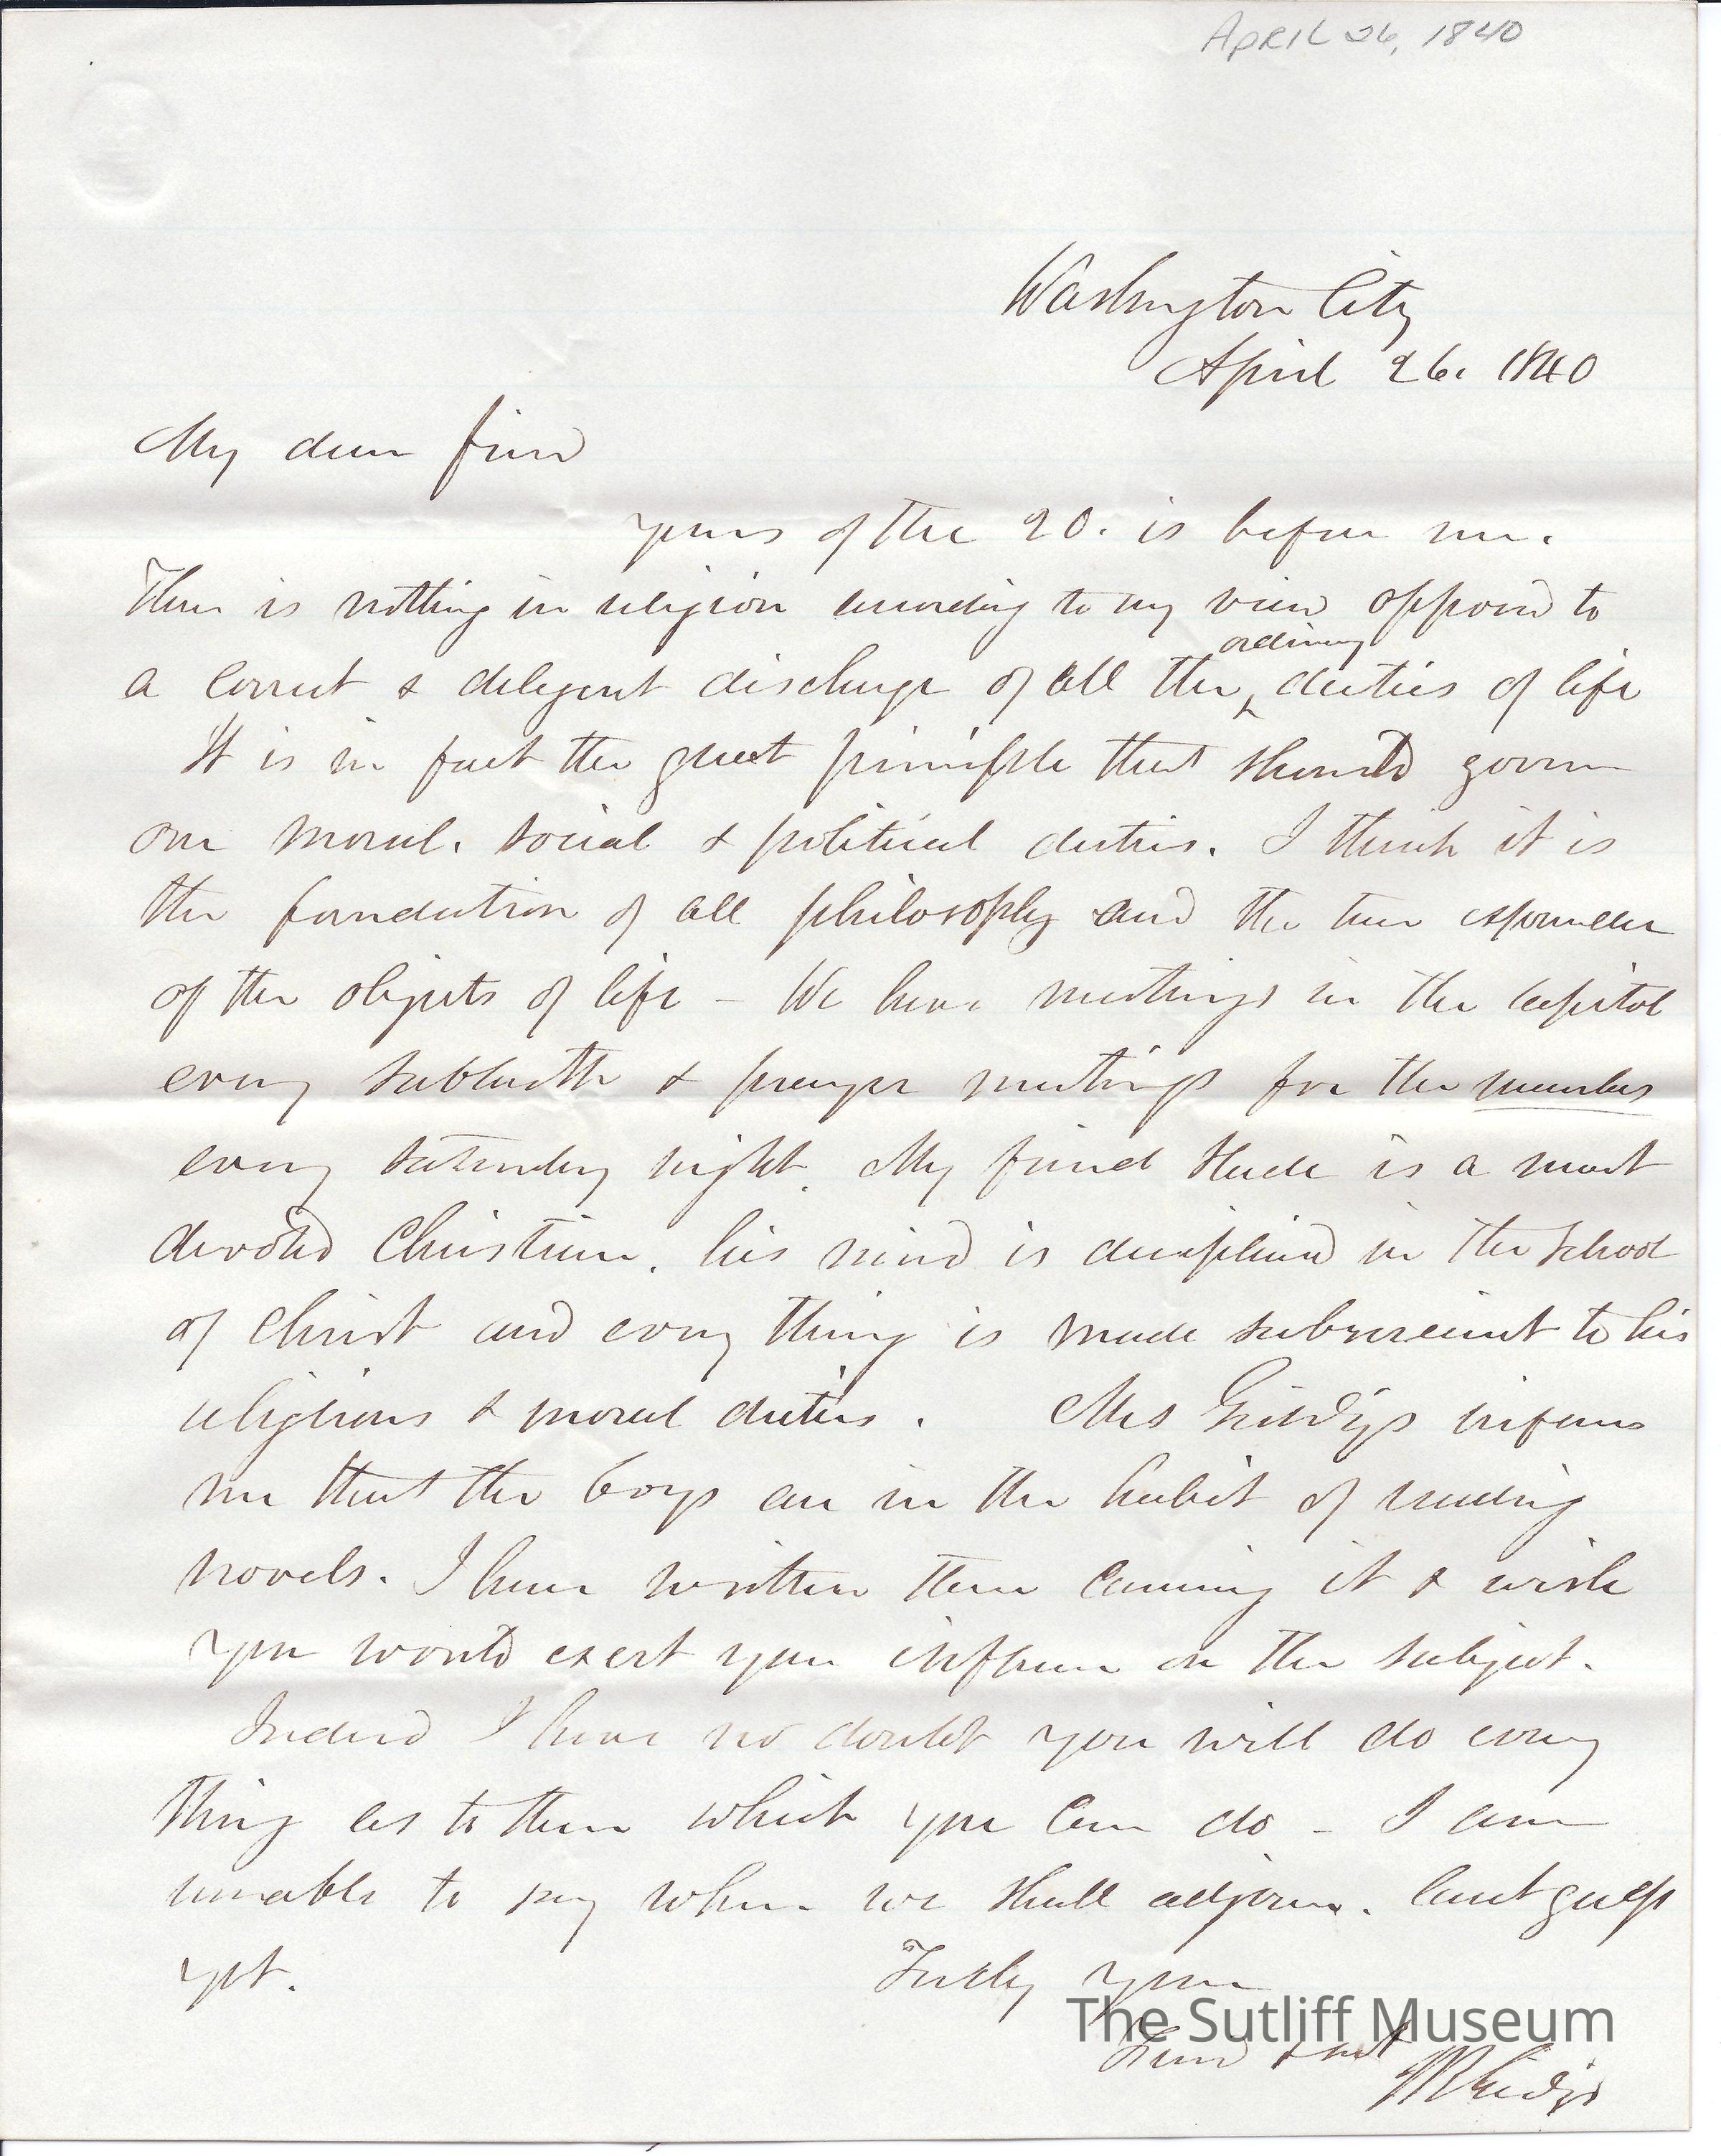 APRIL 26, 1840
Washington City
April 26. 1840
My dear friend
yours of the 20. is before me.
There is nothing in religion according to my view opposed to
a correct & diligent discharge of all the ordinary duties of life
It is in fact the great principle that should govern
our moral. social & political duties. I think it is
the foundation of all philosophy and the true expounder
of the objects of life - We have meetings in the capitol
every sabbath & prayer meetings for the members
every saturday night. My friend Slade is a most
devoted Christian. his mind is disciplined in the school
of Christ and every thing is made subservient to his
religious & moral duties. Mrs Giddings informs
me that the boys are in the habit of reading
novels. I have written them concerning it & wish
you would exert your influence on the subject.
Indeed I have no doubt you will do every
thing as to them which you can do - I am
unable to say when we shall adjourn. Cant guess
yet. Truly your
The Sutliff Museum
friend
JR Giddings